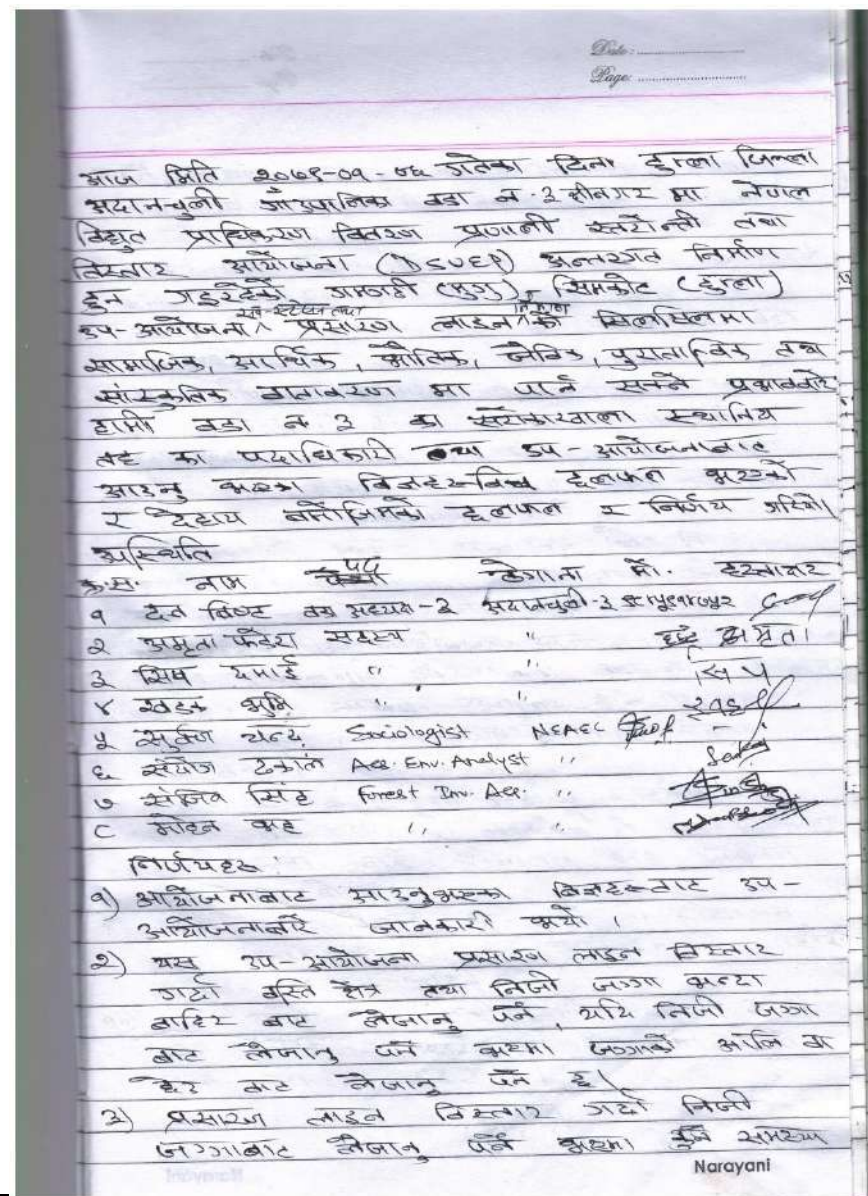 Date: ....................
Page: ....................
आज मिति २०७९-०१-०६ गतेका दिन हुम्ला जिल्ला
अदानचुली गाँउपालिका वडा नं. ३ श्रीनगर मा नेपाल
विद्युत प्राधिकरण वितरण प्रणाली स्तरोन्नती तथा
विस्तार आयोजना (DSUEP) अन्तरगत निर्माण
हुन गइरहेको गमगढी (मुगु), सिमकोट (हुम्ला)
सब-स्टेसन तथा निर्माण
उप-आयोजना ^ प्रसारण लाइन ^ को सिलसिलमा
सामाजिक, आर्थिक, भौतिक, जैविक, पुरातात्विक तथा
सांस्कृतिक वातावरण मा पार्न सक्ने प्रभावबारे
हामी वडा नं. ३ का सरोकारवाला स्थानिय
तह का पदाधिकारी तथा उप-आयोजनाबाट
आउनु भएका विज्ञहरुबिच छलफल भएको
र देहाय बमोजिमको छलफल र निर्णय गरियो।
उपस्थिति
क्र.स. नाम पद ठेगाना मो. हस्ताक्षर
१ दत्त बिष्ट वडा अध्यक्ष-३ अदानचुली-३
२ अमृता सदस्य " अमृता
३ सिप दमाई " "
४ खडक " " खडक
५ Sociologist NEAEC
६ संयोग ढकाल Ass. Env. Analyst "
७ संजिव सिंह Forest Inv. Ass. "
८ मोहन शाह " "
निर्णयहरु
१) आयोजनाबाट आउनुभएका विज्ञहरुबाट उप-
आयोजनाबारे जानकारी भयो ।
२) यस उप-आयोजना प्रसारण लाइन बिस्तार
गर्दा बस्ति क्षेत्र तथा निजी जग्गा भन्दा
बाहिर बाट लैजानु पर्ने, यदि निजी जग्गा
बाट लैजानु पर्ने भएमा जग्गाको आलि वा
छेउ बाट लैजानु पर्ने छ।
३) प्रसारण लाइन बिस्तार गर्दा निजी
जग्गाबाट लैजानु पर्ने भएमा हुने समस्या
Narayani